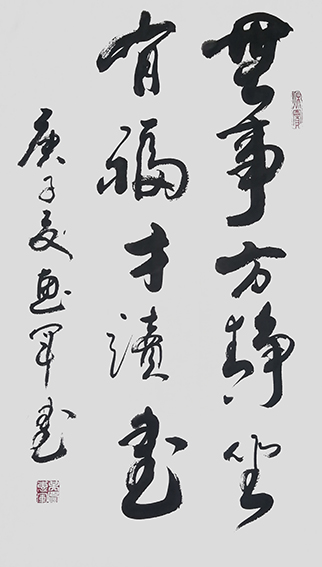 無事方靜坐
有福才讀書
庚子夏惠軍書